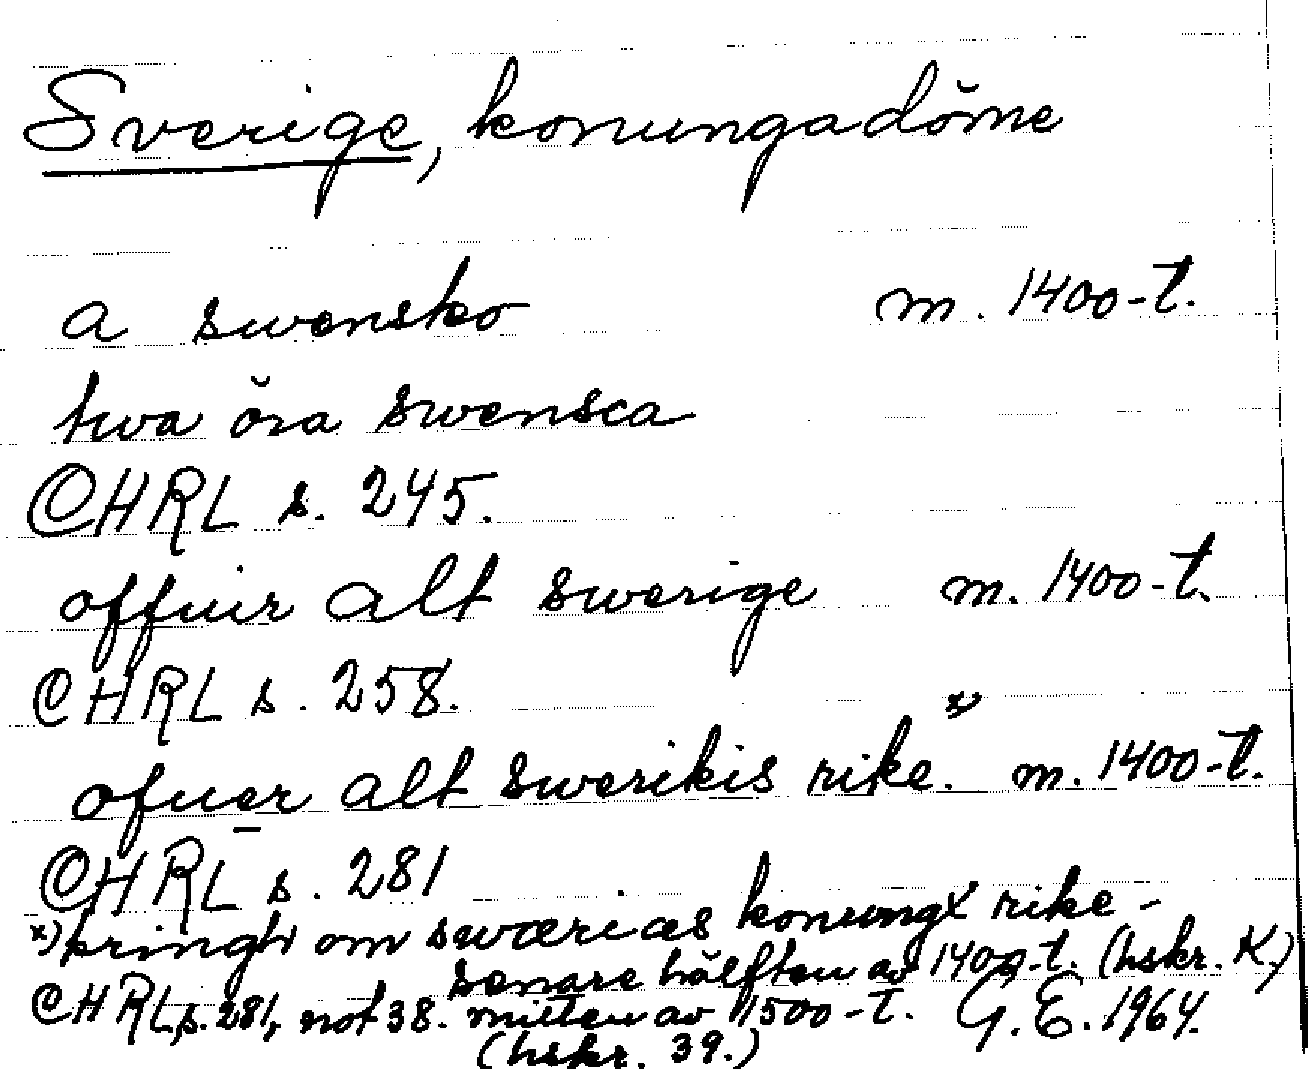 Sverige, konungadöme
a swensko m. 1400-t.
twa öra swensca
CHRL s. 245.
offuir alt swerige m. 1400-t.
CHRL s. 258.
ofuer alt swerikis rike. x) m. 1400-t.
CHRL s. 281
x) kringh om swærices konungx rike -
senare hälften av 1400-t. (hskr. K.)
CHRL, s. 281, not 38. mitten av 1500-t. G. E. 1964.
(hskr. 39.)